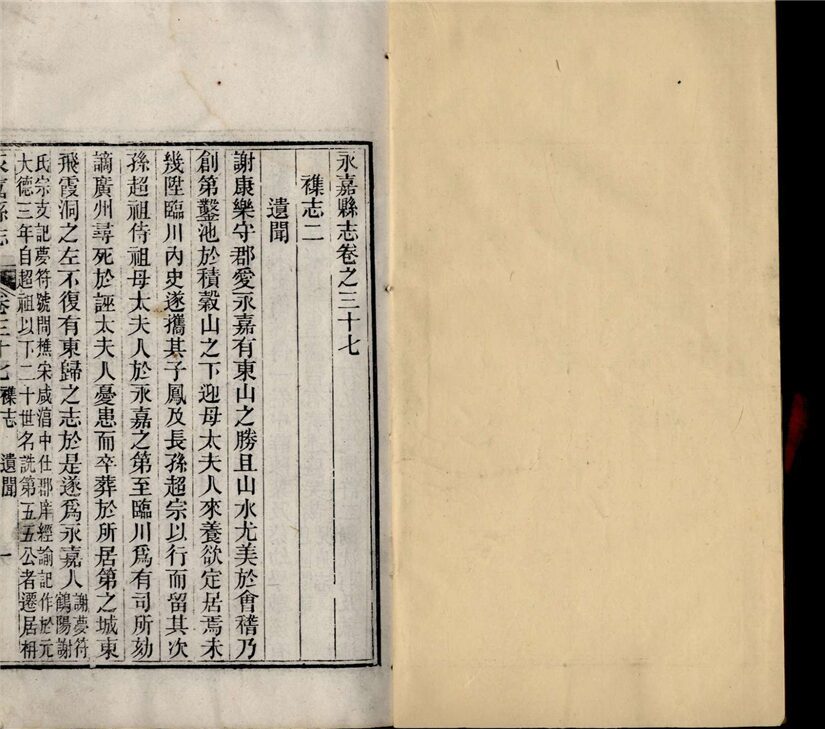 永嘉縣志卷之三十七
襍志二
遺聞
謝康樂守郡愛永嘉有東山之勝且山水尤美於會稽乃
創第鑿池於積穀山之下迎母太夫人來養欲定居焉未
幾陞臨川內史遂攜其子鳳及長孫超宗以行而留其次
孫超祖侍祖母太夫人於永嘉之第至臨川爲有司所劾
謫廣州尋死於誣太夫人憂患而卒葬於所居第之城東
飛霞洞之左不復有東歸之志於是遂爲永嘉人
謝夢符
鶴陽謝
氏宗支記夢符號問樵宋咸湻中仕郡庠經諭記作於元
大德三年自超祖以下二十世名詵第五五公者遷居枬
永嘉縣志
卷三十七 襍志 遺聞 一